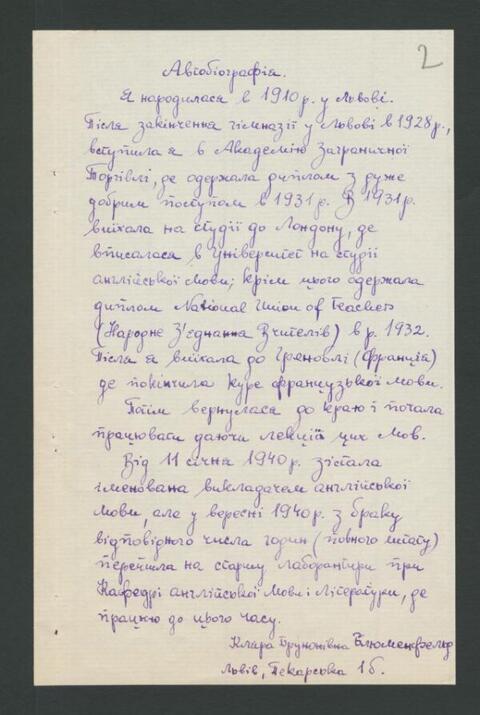 2
Автобіографія.
Я народилася в 1910 р. у Львові.
Після закінчення гімназії у Львові в 1928 р.,
вступила я в Академію Заграничної
Торгівлі, де одержала диплом з дуже
добрим поступом в 1931 р. В 1931 р.
виїхала на студії до Лондону, де
вписалася в Університет на студії
англійської мови; крім цього одержала
диплом National Union of Teachers
(Народне З'єднання Вчителів) в р. 1932.
Після я виїхала до Греноблі (Франція)
де покінчила курс французької мови.
Потім вернулася до краю і почала
працювати даючи лекції цих мов.
Від 11 січня 1940 р. зістала
іменована викладачем англійської
мови, але у вересні 1940 р. з браку
відповідного числа годин (повного штату)
перейшла на старшу лаборантури при
Кафедрі англійської Мови і Літератури, де
працюю до цього часу.
Клара Бруновівна Блюменфельд
Львів, Пекарська 1б.